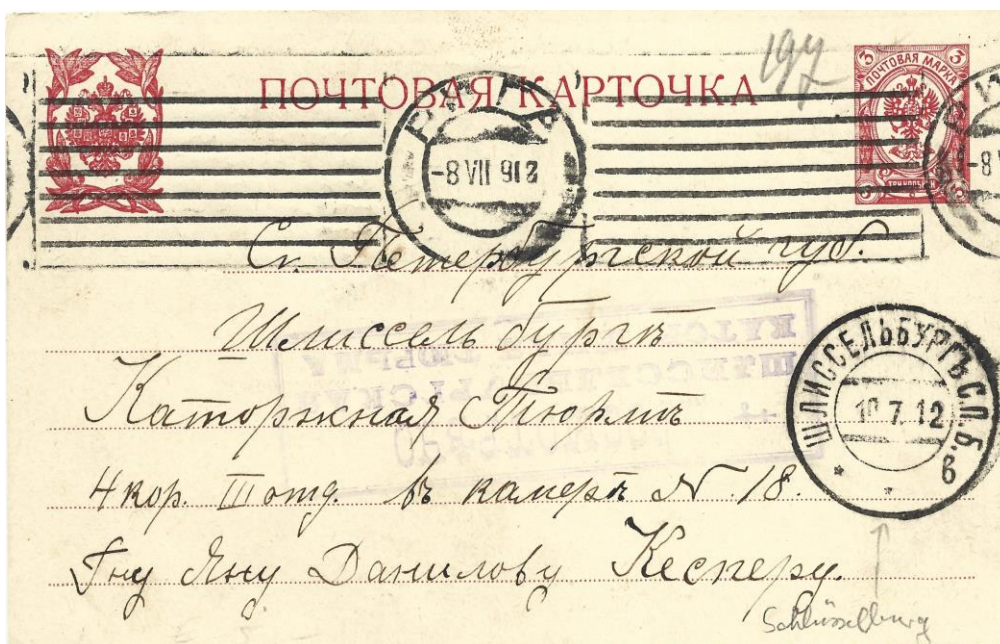 197
ПОЧТОВАЯ КАРТОЧКА
3 ПОЧТОВАЯ МАРКА 3
РИГА
-8 VII 912
Ст. Петербургской губ.
Шлиссельбургъ
Каторжная Тюрмѣ
4 кор. III отд. въ камерѣ N. 18.
Гну Яну Данилову Кесперу.
ШЛИССЕЛЬБУРГЪ С.П.Б.
10.7.12
в
Schlüsselburg